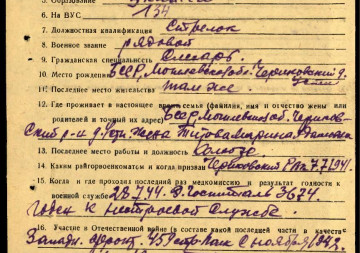 6. На ВУС 134
7. Должностная квалификация Стрелок
8. Военное звание рядовой
9. Гражданская специальность Слесарь
10. Место рождения БССР, Могилевской обл. Чериковский д.
11. Последнее место жительства там же
12. Где проживает в настоящее время семья (фамилия, имя и отчество жены или
родителей и точный их адрес) БССР, Могилевской обл. Чериков-
ский р-н д. жена
13. Последнее место работы и должность Колхоз
14. Каким райгорвоенкоматом и когда призван Чериковский РВК 7.7.1941.
15. Когда и где проходил последн. медкомиссию и результат годности к
военной службе 28.7.44. В Госпитале 3674.
годен к нестроевой службе.
16. Участие в Отечественной войне (в составе какой последней части и в качестве
Западн. фронт. 459 с ноября 1942